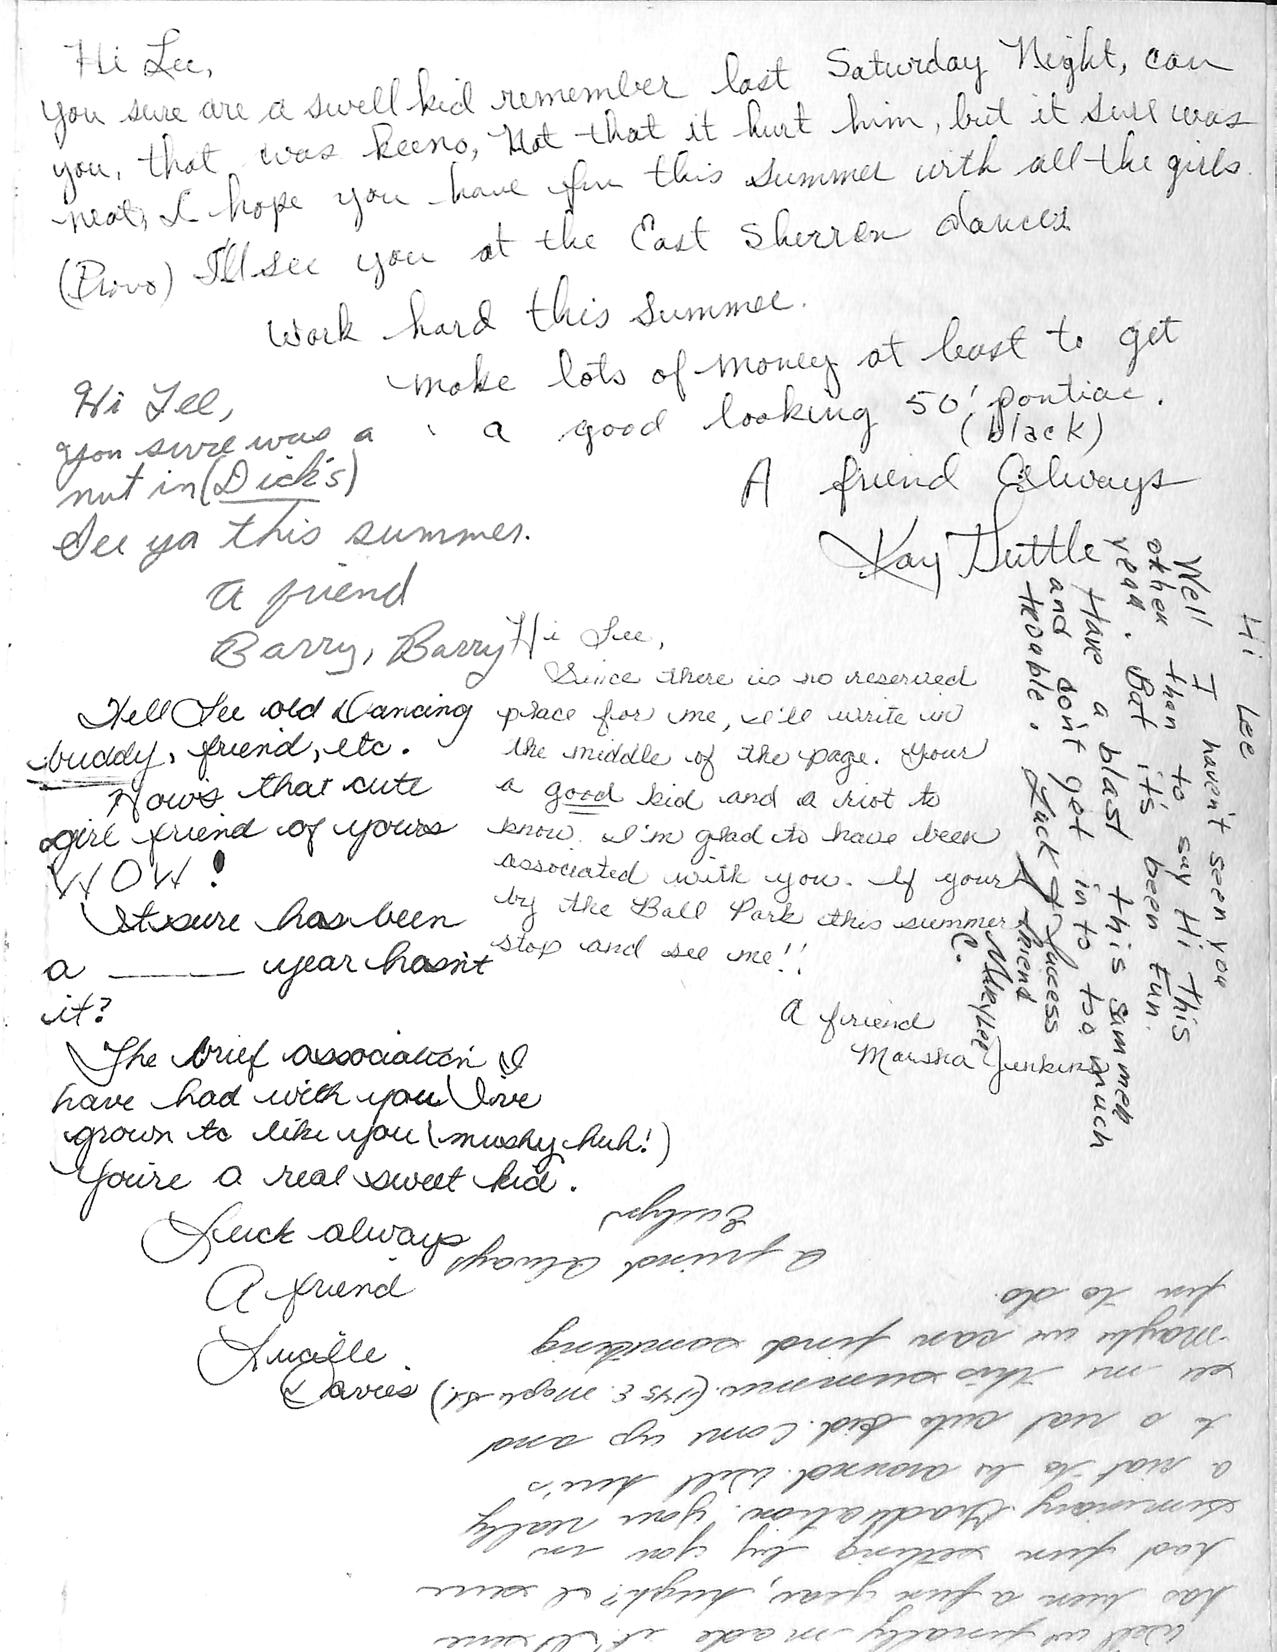 Hi Lee,
you sure are a swell kid remember last Saturday Night, can
you, that was keeno, Not that it hurt him, but it sure was
neat, I hope you have fun this summer with all the girls.
(Provo) I'll see you at the East Sherren dances
work hard this summer.
make lots of money at least to get
a good looking 50' pontiac.
(black)
A friend Always
Kay Tuttle
Hi Lee,
you sure was a
nut in (Dick's)
See ya this summer.
a friend
Barry, Barry
Hi Lee,
Since there is no reserved
place for me, I'll write in
the middle of the page. Your
a good kid and a riot to
know. I'm glad to have been
associated with you. If your
by the Ball Park this summer
stop and see me!!
A friend
Marsha Jenkins
Hi Lee
Well I haven't seen you
other than to say Hi this
year. But it's been fun.
Have a blast this summer
and don't get in to too much
trouble. Luck & Success
A friend
Marylee
C.
Hell Lee old Dancing
buddy, friend, etc.
How's that cute
girl friend of yours
WOW!
It sure has been
a _____ year hasn't
it?
The brief association I
have had with you I've
grown to like you (mushy huh!)
You're a real sweet kid.
Luck always
A friend
Lucille
Davies
Well we finally made it. It sure
has been a fun year, hugh? I sure
had fun setting by you in
seminary Graduation. your really
a riot to be around. Well here's
to a real cute kid. Come up and
see me this summer. (145 E. Maple St.)
Maybe we can find something
fun to do.
A friend Always
Evelyn